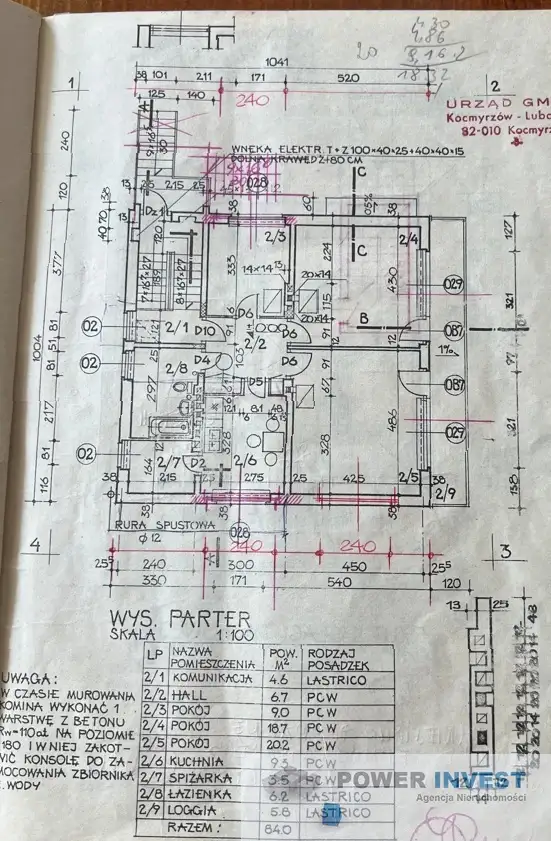 4.30
4.86
9,16.2
20
18 32
1041
38 101 211 171 520
125 140 240
1
2
URZĄD GM
Kocmyrzów - Lubo
82-010 Kocmyrz
WNĘKA ELEKTR. T+Z 100×40×25+40×40×15
DOLNA KRAWĘDŹ +80 CM
240
120
377
1004
81 51 81
217
81
116
9×16
30
028
C
C
0,5%
38
60
13 25 215 25
DZ1
120
2/3
2/4
224
333
14×14
20×14
430
115
20×14
127
321
029
087
1%
B
7×16⁷×27
8×16⁷×27
189
02
02
02
2/1
D10
D6
2/2
D6
D6
D4
2/8
D5
103
91
91
67
297
121 81 48
328
328
486
087
029
2/7
D2
2/6
2/5
2/9
164
215 25 275 25 425 38
38
138
RURA SPUSTOWA
Ø 12
028
240 240
4
3
25⁵ 240 300 450 25⁵
330 171 540 120
13 25
WYS. PARTER
SKALA 1:100
LP NAZWA POMIESZCZENIA POW. M² RODZAJ POSADZEK
2/1 KOMUNIKACJA 4.6 LASTRICO
2/2 HALL 6.7 PCW
2/3 POKÓJ 9.0 PCW
2/4 POKÓJ 18.7 PCW
2/5 POKÓJ 20.2 PCW
2/6 KUCHNIA 9.3 PCW
2/7 SPIŻARKA 3.5 PCW
2/8 ŁAZIENKA 6.2 LASTRICO
2/9 LOGGIA 5.8 LASTRICO
RAZEM: 84.0
UWAGA:
W CZASIE MUROWANIA
KOMINA WYKONAĆ 1
WARSTWĘ Z BETONU
Rw=110at NA POZIOMIE
180 I W NIEJ ZAKOT-
WIĆ KONSOLĘ DO ZA-
MOCOWANIA ZBIORNIKA
WODY
POWER INVEST
Agencja Nieruchomości